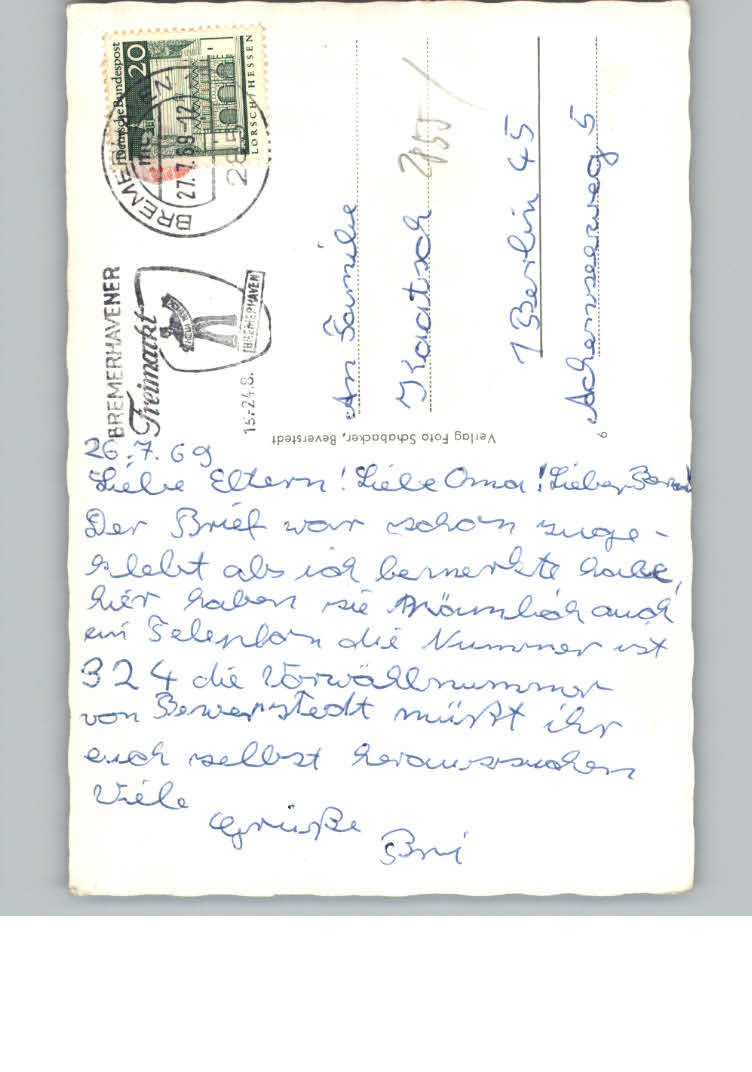 Deutsche Bundespost
20
LORSCH / HESSEN
BREMERHAVEN
27.7.69-12
285
BREMERHAVENER
Freimarkt
BREMERHAVEN
15.-24.8.
An Familie
Kaatsch
1 Berlin 45
Achenseeweg 5
Verlag Foto Schabacker, Beverstedt
26.7.69
Liebe Eltern! Liebe Oma! Lieber Bernd
Der Brief war schon zuge-
klebt als ich bemerkte habe,
hier haben sie nämlich auch
ein Telephon die Nummer ist
324 die Vorwählnummer
von Bewerstedt müßt ihr
euch selbst heraussuchen
Viele
Grüße
Bri